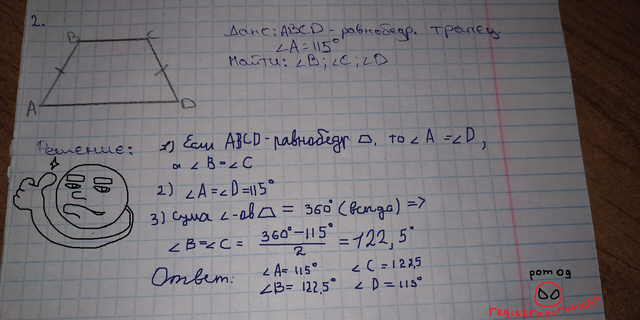 2.
B C
A D
Дано: ABCD - равнобедр. трапец.
∠A = 115°
Найти: ∠B; ∠C; ∠D
Решение:
1) Если ABCD - равнобедр ⏢, то ∠A = ∠D,
а ∠B = ∠C
2) ∠A = ∠D = 115°
3) Сума ∠-ов ⏢ = 360° (всегда) =>
∠B = ∠C = (360° - 115°)/2 = 122,5°
Ответ: ∠A = 115° ∠C = 122,5
∠B = 122,5° ∠D = 115°
ротод